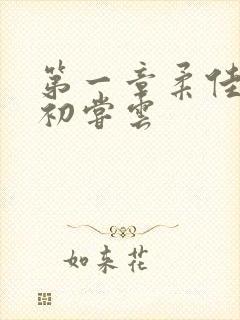 第一章柔佳
初尝雲
如来花